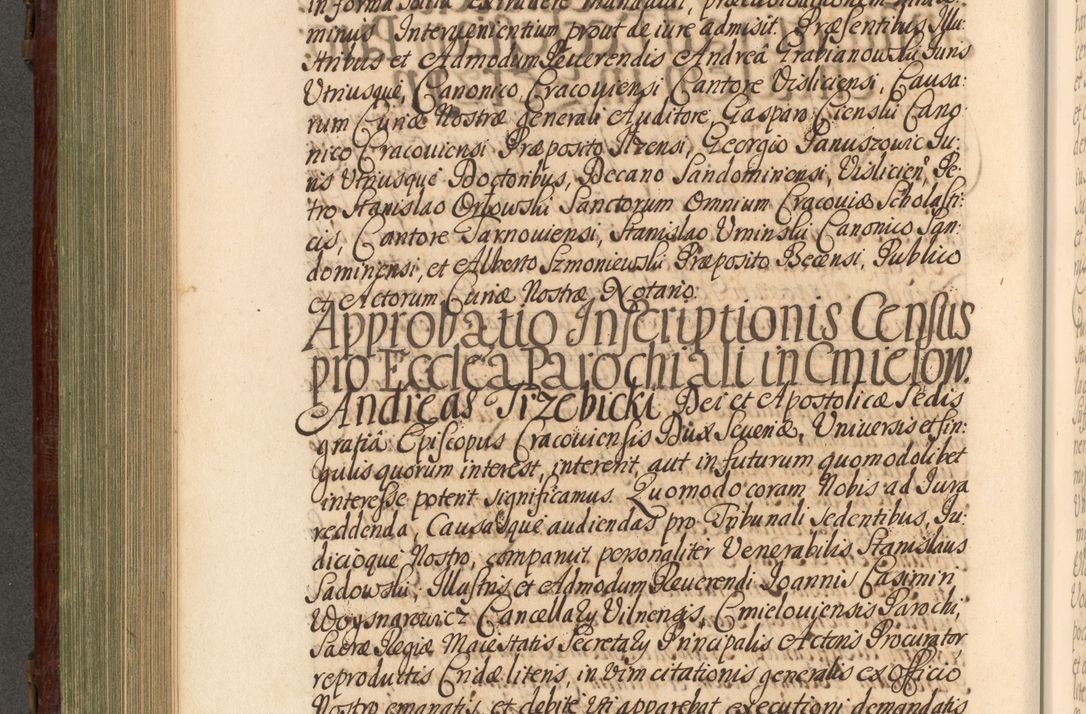 in forma solita extradere mandavit, præcustoditionem
minus Intervenientium prout de iure admisit. Præsentibus Illu:
stribus et Admodum Reuerendis Andreâ Grabianowski Iuris
Vtriusque, Canonico Cracouiensi Cantore Visliciensi, Causa:
rum Curiæ Nostræ generali Auditore, Gasparo Cienski Cano:
nico Cracouiensi Præposito Ilzensi, Georgio Ianuszowic Iu:
ris Vtriusque Doctoribus, Decano Sandomiriensi, Vislicien, Pe:
tro Stanislao Orłowski Sanctorum Omnium Cracouiæ Scholasti:
cis, Cantore Tarnouiensi, Stanislao Vminski Canonico San:
domiriensi, et Alberto Szmoniewski Præposito Becensi, Publico
et Actorum Curiæ Nostræ Notario.
Approbatio Inscriptionis Census
pro Ecclea Parochiali in Cmielow.
Andreas Trzebicki Dei et Apostolicæ Sedis
gratiâ Episcopus Cracouiensis Dux Seueriæ, Vniuersis et sin:
gulis quorum interest, intererit, aut in futurum quomodolibet
interesse poterit significamus. Quomodo coram Nobis ad Iura
reddenda, Causasque audiendas pro Tribunali sedentibus, Iu:
dicioque Nostro, comparuit personaliter Venerabilis Stanislaus
Sadowski, Illustris et Admodum Reuerendi Ioannis Casimiri
Woysnarowicz Cancellary Vilnensis, Cmielouiensis Parochi,
Sacræ Regiæ Maiestatis Secretary Principalis Actoris Procurator
reproductis Cridæ literis, in vim citationis generalis ex Officio
Nostro emanatis, et debite vti apparebat executioni demandatis